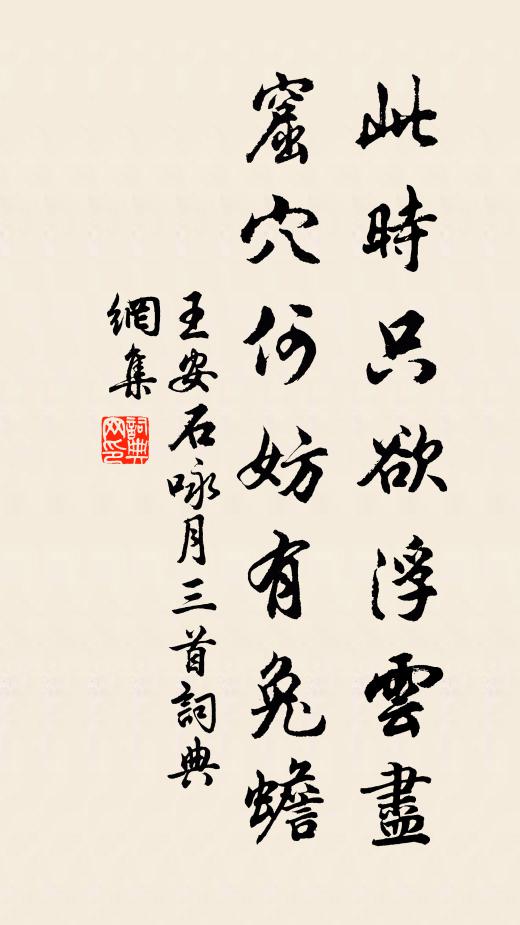 此時只欲浮雲盡
窟穴何妨有兔蟾
王安石咏月三首詞典
網集
詞典
网印